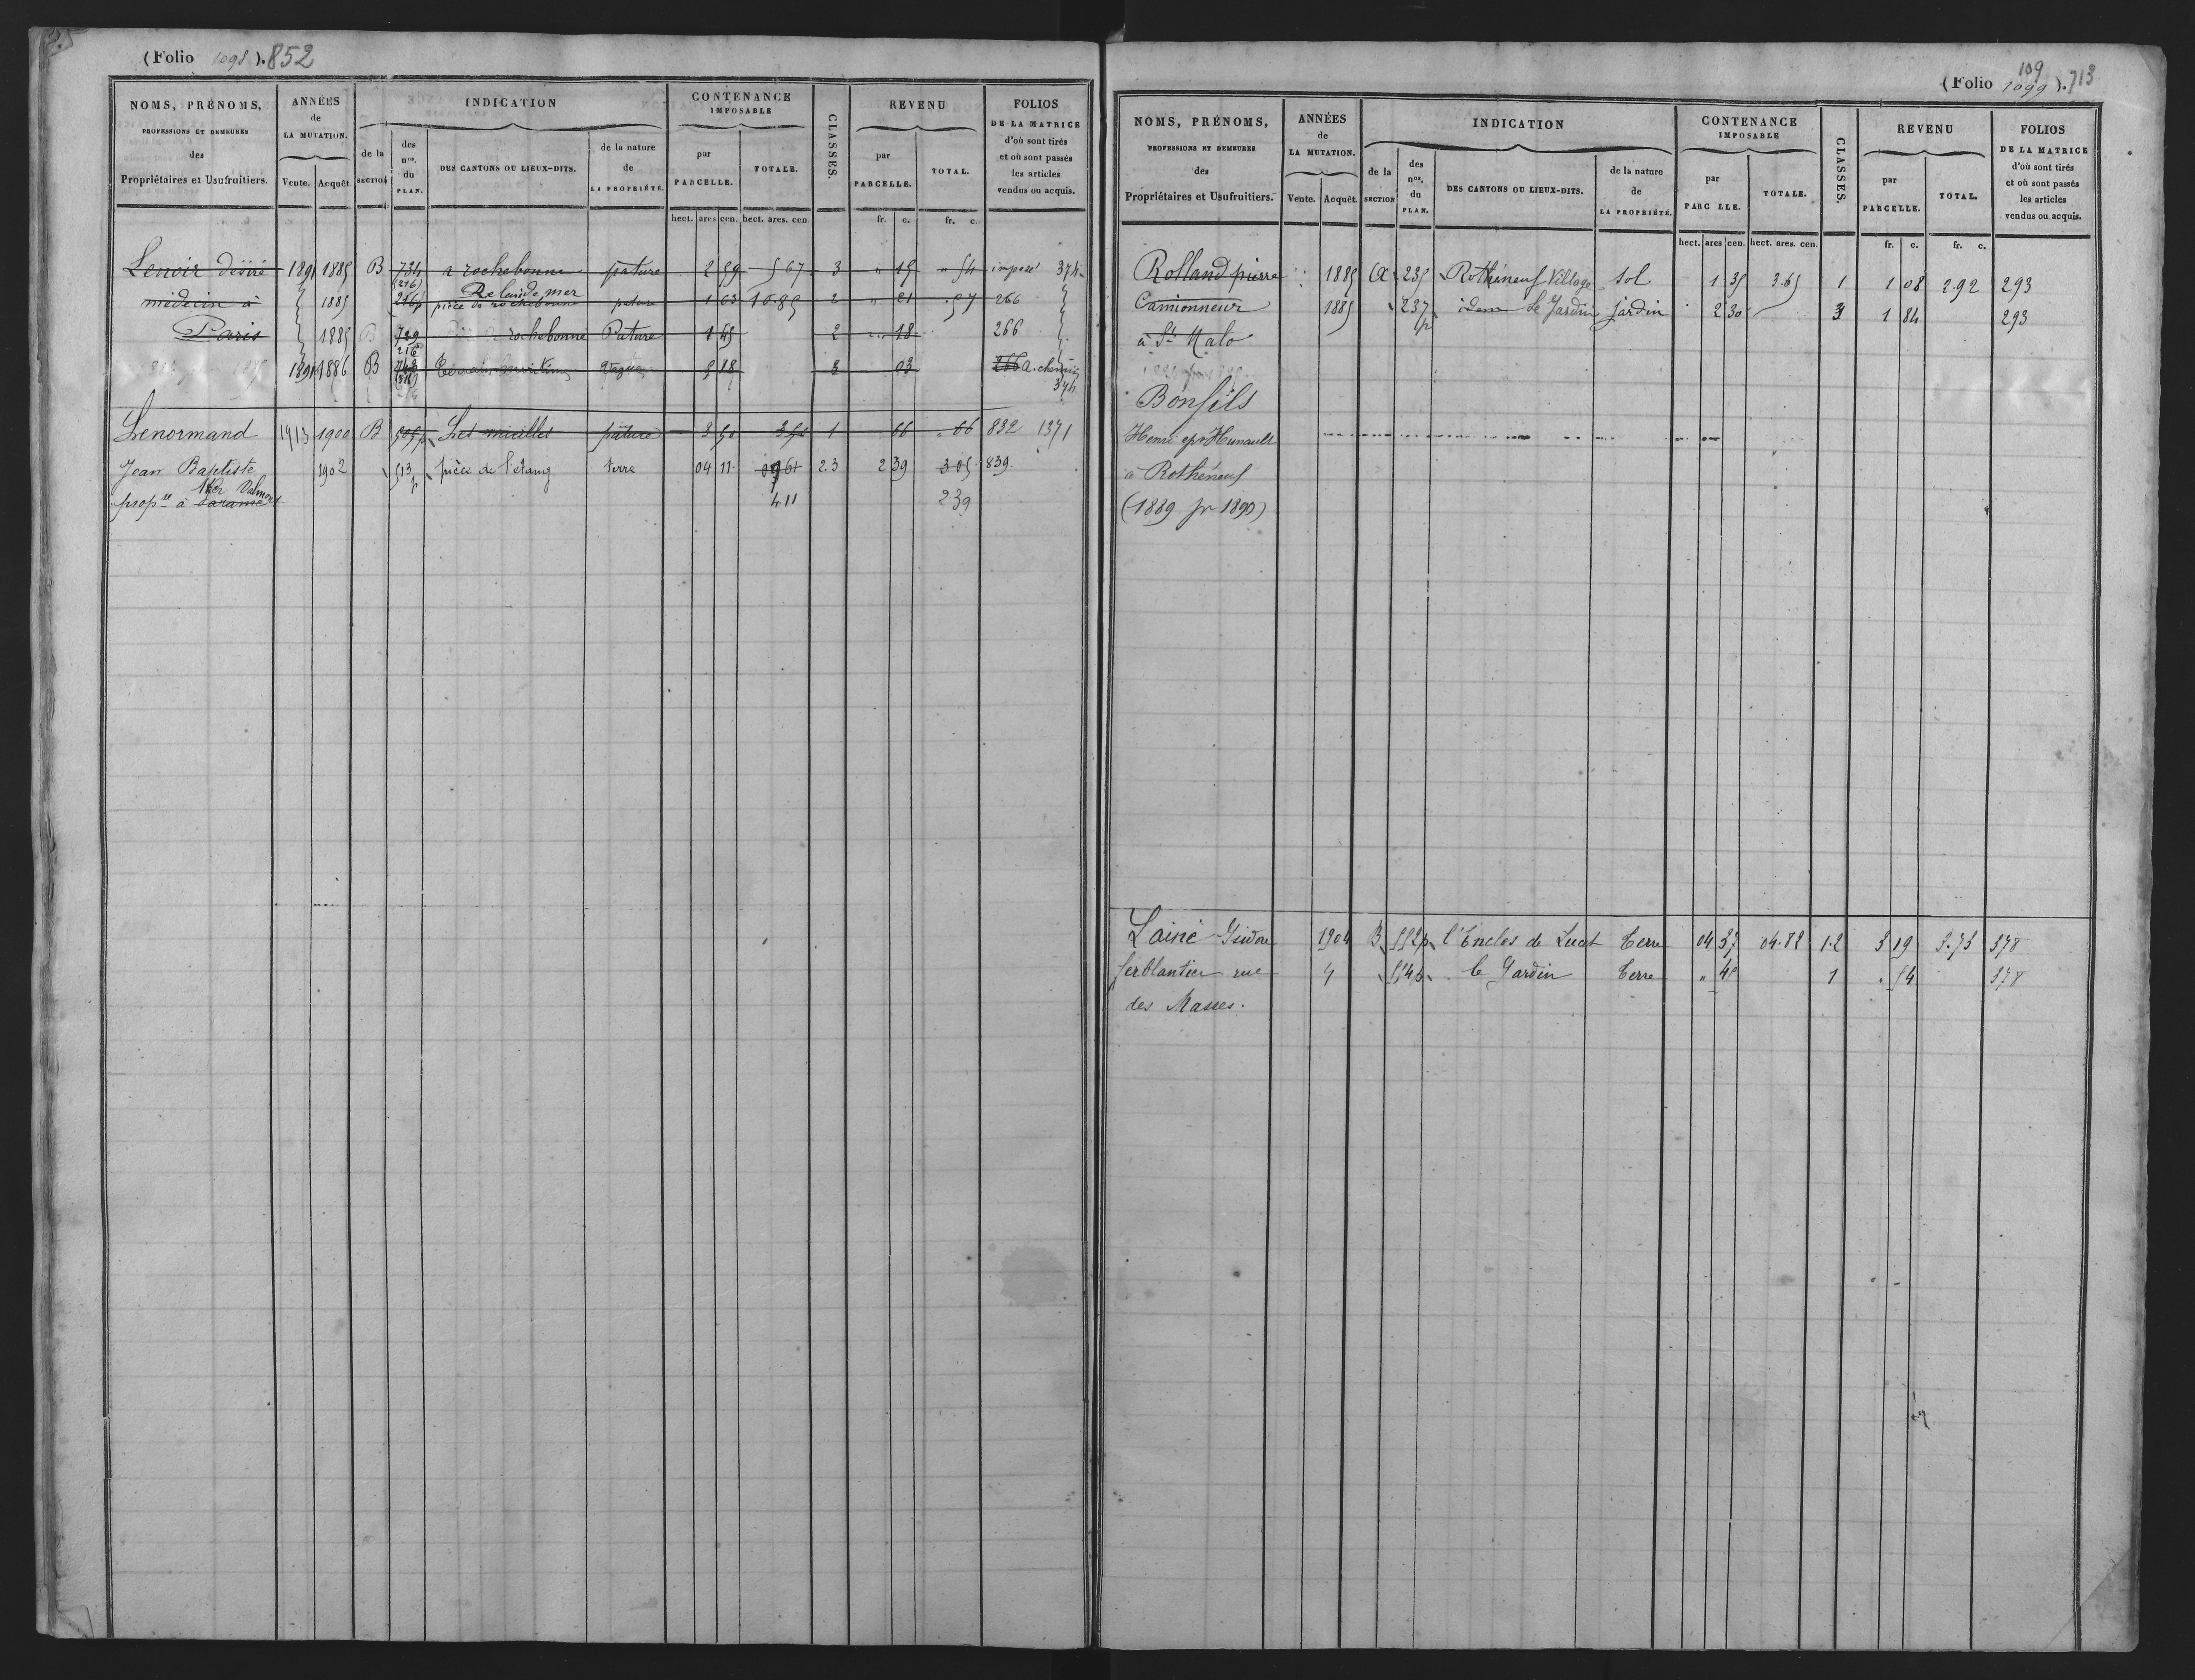 (Folio 1098). 852
NOMS, PRÉNOMS, PROFESSIONS ET DEMEURES des Propriétaires et Usufruitiers.
ANNÉES de LA MUTATION. Vente. Acquêt
INDICATION de la SECTION des nos. du PLAN. DES CANTONS OU LIEUX-DITS. de la nature de LA PROPRIÉTÉ.
CONTENANCE IMPOSABLE par PARCELLE. TOTALE. hect. ares cen. hect. ares. cen.
CLASSES.
REVENU par PARCELLE. TOTAL. fr. c. fr. c.
FOLIOS DE LA MATRICE d'où sont tirés et où sont passés les articles vendus ou acquis.
Lenoir désiré 1891 1885 B 734 a rochebonne pature 2 59 5 67 3 " 15 " 54 imposé 374
(216) Relais de mer
médecin à 1885 216p pièce de rochebonne pature 1 63 10 85 2 " 21 . 57 266
Paris 1885 B 739 rochebonne Pature 1 45 2 18 266
216
1891 1886 B Terrain maritime Vague 5 18 2 03 266 a. chemin
374
Lenormand 1913 1900 B 505p Les mielles pâture 3 50 3 50 1 66 " 66 832 1371
Jean Baptiste 1902 513 p pièce de l'étang terre 04 11 07 61 2.3 2 39 3 05 839
Valmort
propre à Paramé 4 11 2 39
(Folio 1099). 713
109
NOMS, PRÉNOMS, PROFESSIONS ET DEMEURES des Propriétaires et Usufruitiers.
ANNÉES de LA MUTATION. Vente. Acquêt.
INDICATION de la SECTION des nos. du PLAN. DES CANTONS OU LIEUX-DITS. de la nature de LA PROPRIÉTÉ.
CONTENANCE IMPOSABLE par PARC LLE. TOTALE. hect. ares cen. hect. ares. cen.
CLASSES.
REVENU par PARCELLE. TOTAL. fr. c. fr. c.
FOLIOS DE LA MATRICE d'où sont tirés et où sont passés les articles vendus ou acquis.
Rolland pierre 1885 A 235 Rothéneuf Village sol 1 35 3.65 1 1 08 2.92 293
Camionneur 1885 237 p idem le Jardin Jardin 2 30 3 1 84 293
à St Malo
Bonfils
Henri epx Hunault
à Rothéneuf
(1889 pr 1890)
Lainé Isidore 1904 B 552p l'Enclos de Lucet Terre 04 37 04.82 1.2 3 19 3.73 378
ferblantier rue 4 554p le Jardin Terre " 45 1 . 54 378
des Masses.